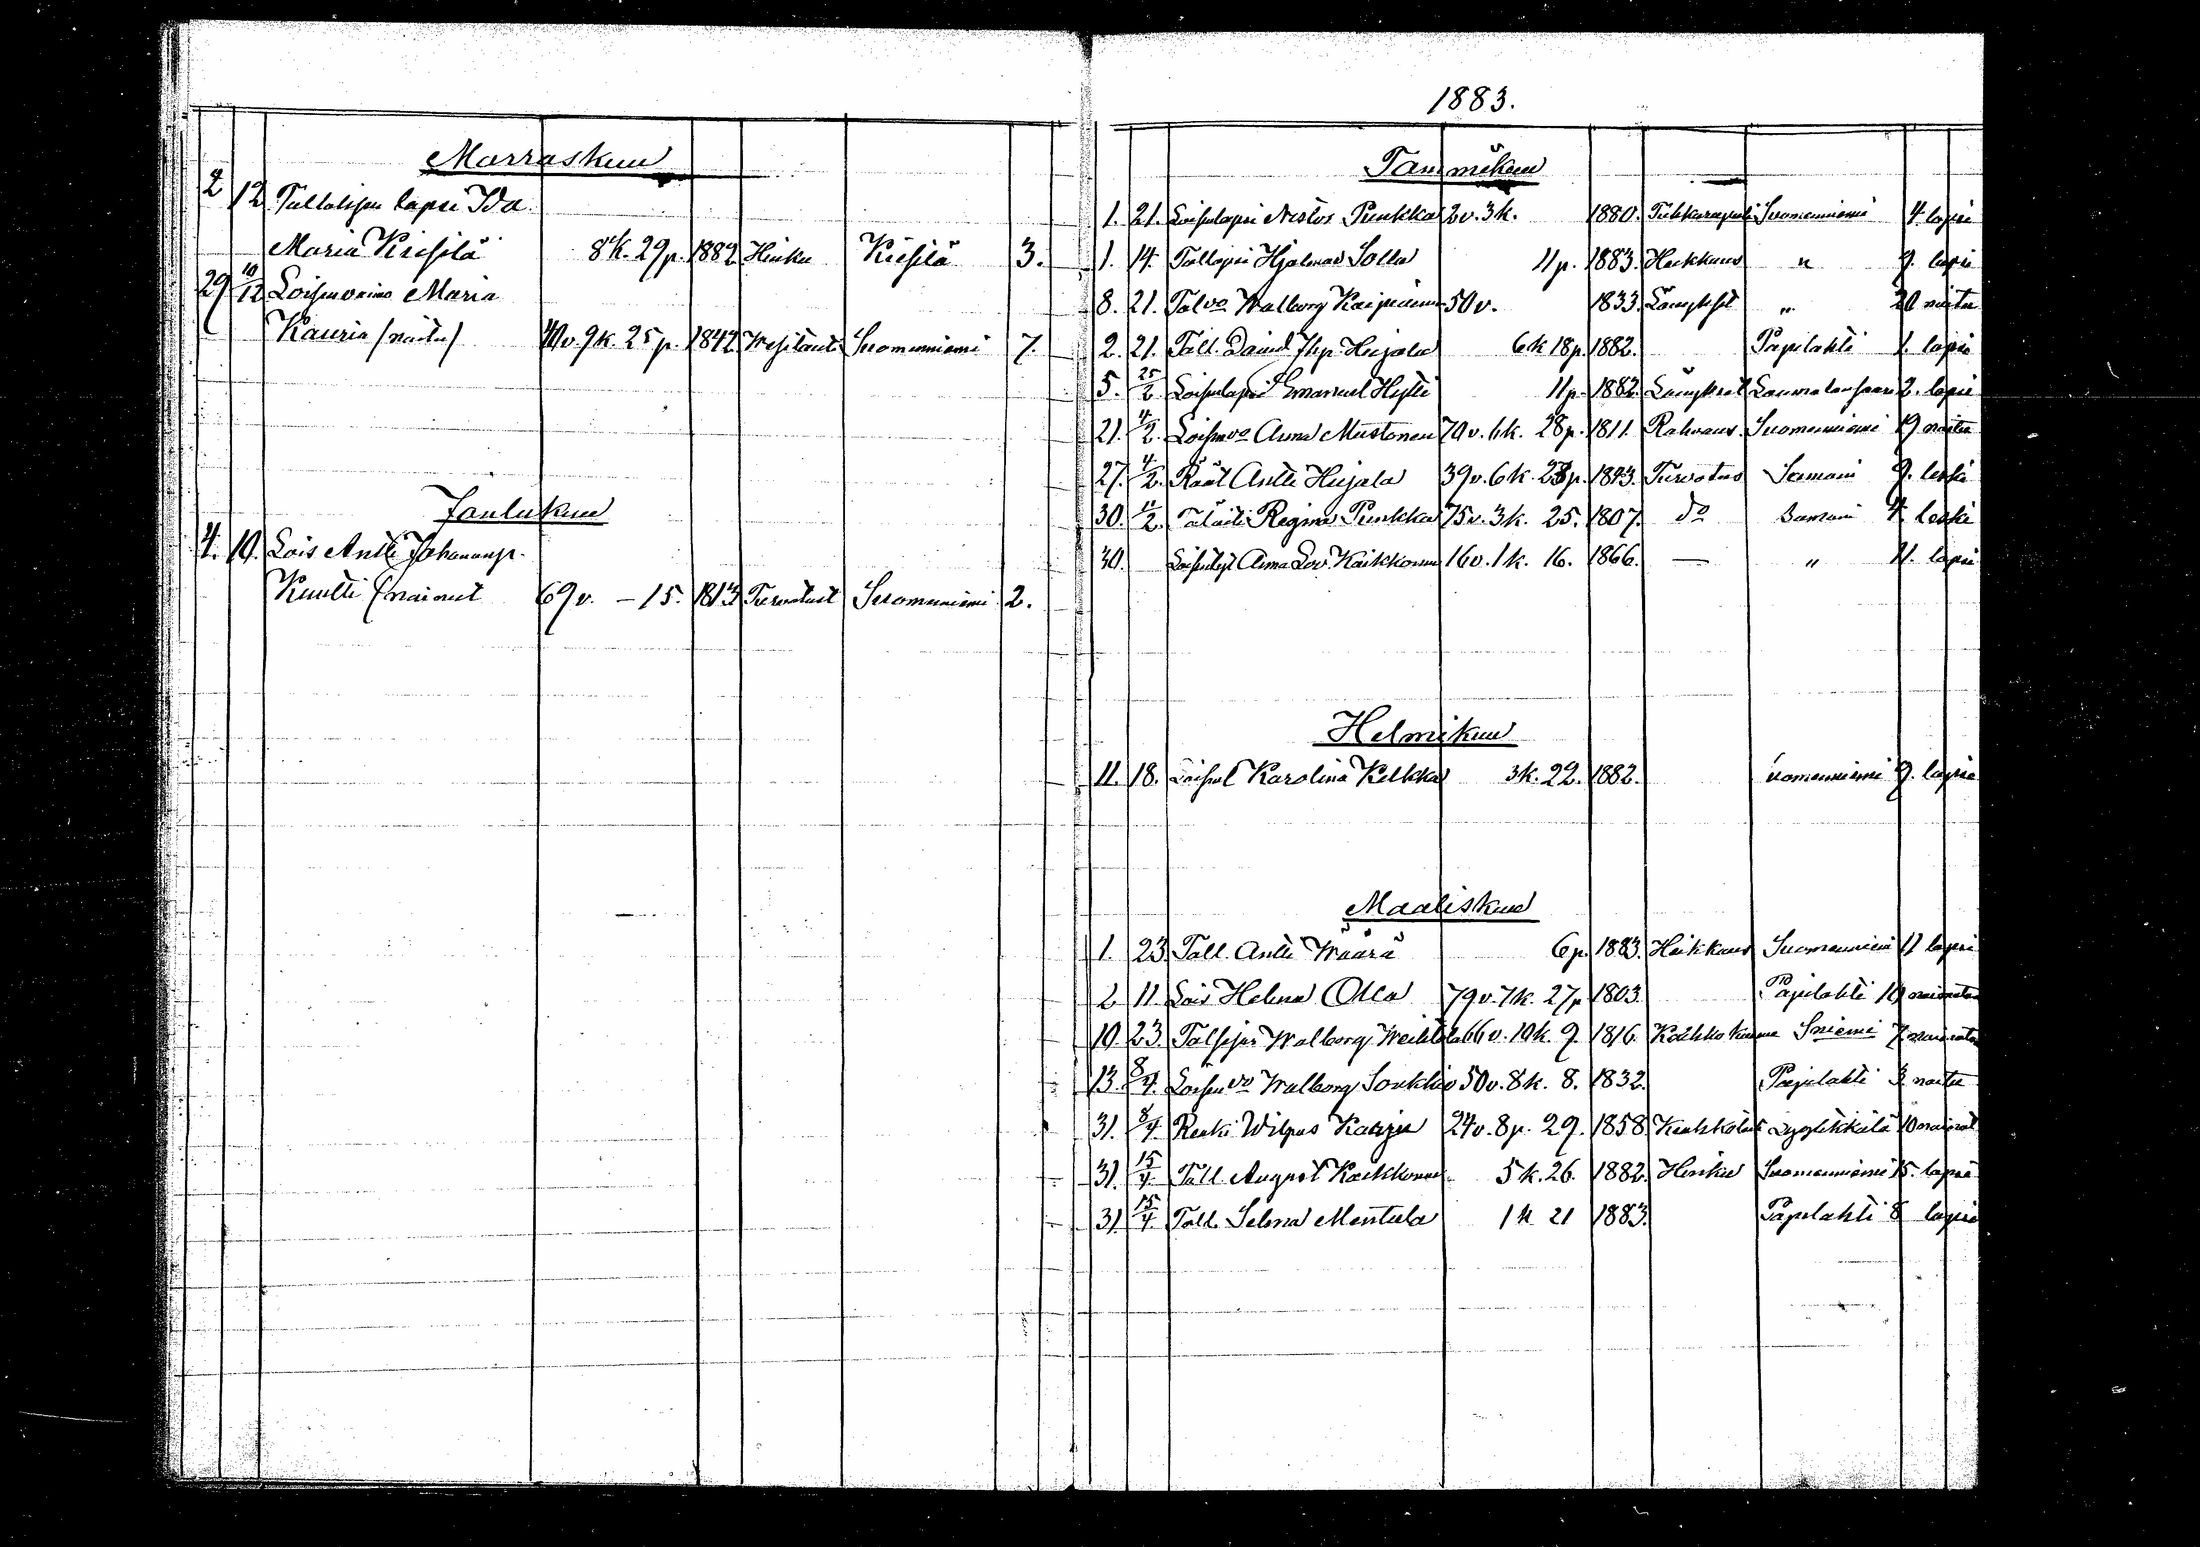 Marraskuu
2 12 Tallolisen lapsi Ida
Maria Kiesilä 8k. 29p. 1882 Hinku Kiesilä 3.
29 10/12 Loisen vaimo Maria
Kauria (naitu) 40v. 9k. 25p. 1842 Suomenniemi 7.
Joulukuu
4. 10. Lois Antti Johananp.
Kuutti (nainut 69v. – 15. 1813 Suomenniemi 2.
1883.
Tammikuu
1. 21. Loisenlapsi Nestor Punkka 2v. 3k. 1880. Suomenniemi 4. lapsi
1. 14. Tal lapsi Hjalmar Solla 11p. 1883. Heikkous " 9. lapsi
8. 21. Tal vo Walborg Kaipiainen 50v. 1833. " 20 naitu
2. 21. Tall. David Hujala 6k 18p. 1882. Pajulahti 1. lapsi
5. 25/2 Loisenlapsi Emanuel Hytti 11p. 1882. 2. lapsi
21. 4/2. Loisen vo Anna Mustonen 70v. 6k. 28p. 1811. Suomenniemi 19 naitu
27. 4/2. Antti Hujala 39v. 6k. 23p. 1843. Turvotus 9. leski
30. 11/2. Regina Punkka 75v. 3k. 25. 1807. do 4. leski
30. Anna Lov. Kaikkonen 16v. 1k. 16. 1866. — " 11. lapsi
Helmikuu
11. 18. Loisenl Karolina Kelkka 3k. 22. 1882. Suomenniemi 9. lapsi
Maaliskuu
1. 23. Tall. Antti Wäärä 6p. 1883. Heikkous Suomenniemi 11 lapsi
2 11. Lois Helena Olla 79v. 7k. 27p 1803. Pajulahti 10
10. 23. Walborg 66v. 10k. 9. 1816. Sniemi 7
13. 8/4. Loisen vo Walborg Soukkio 50v. 8k. 8. 1832. Pajulahti 3 naitu
31. 8/4. Renki Wilpus Karju 24v. 8p. 29. 1858. Lyytikkälä 10
31. 15/4. Tall. August Kaikkonen 5k. 26. 1882. Hinku Suomenniemi 15. lapsi
31. 15/4. Tall. Selma Mentula 1k 21 1883. Pajulahti 8 lapsi